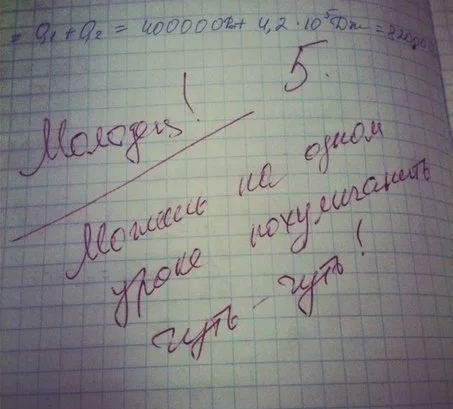 = Q₁ + Q₂ = 400000Дж + 4,2 · 10⁵ Дж = 82000
Молодец! 5.
Можешь на одном
уроке похулиганить
чуть-чуть!